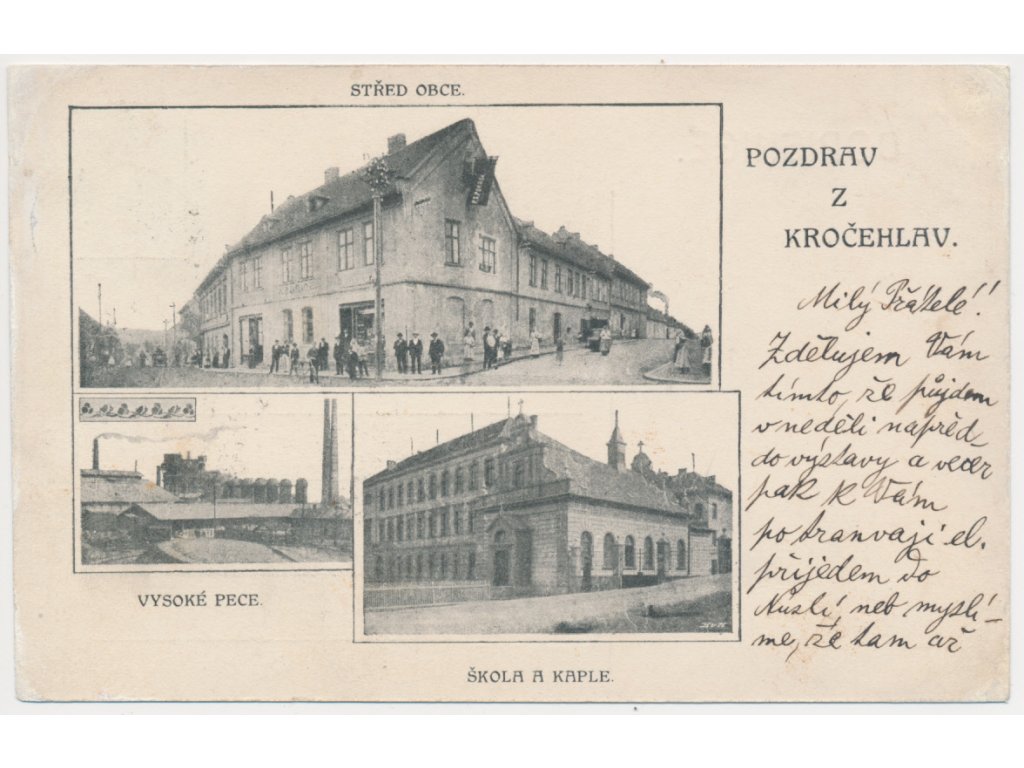 STŘED OBCE.
POZDRAV
Z
KROČEHLAV.
Milý Přátelé!
Zdělujem Vám
tímto, že půjdem
v neděli napřed
do výstavy a večer
pak k Vám
po tranvaji el.
přijedem do
Nuslí, neb myslí-
me, že tam až
VYSOKÉ PECE.
ŠKOLA A KAPLE.